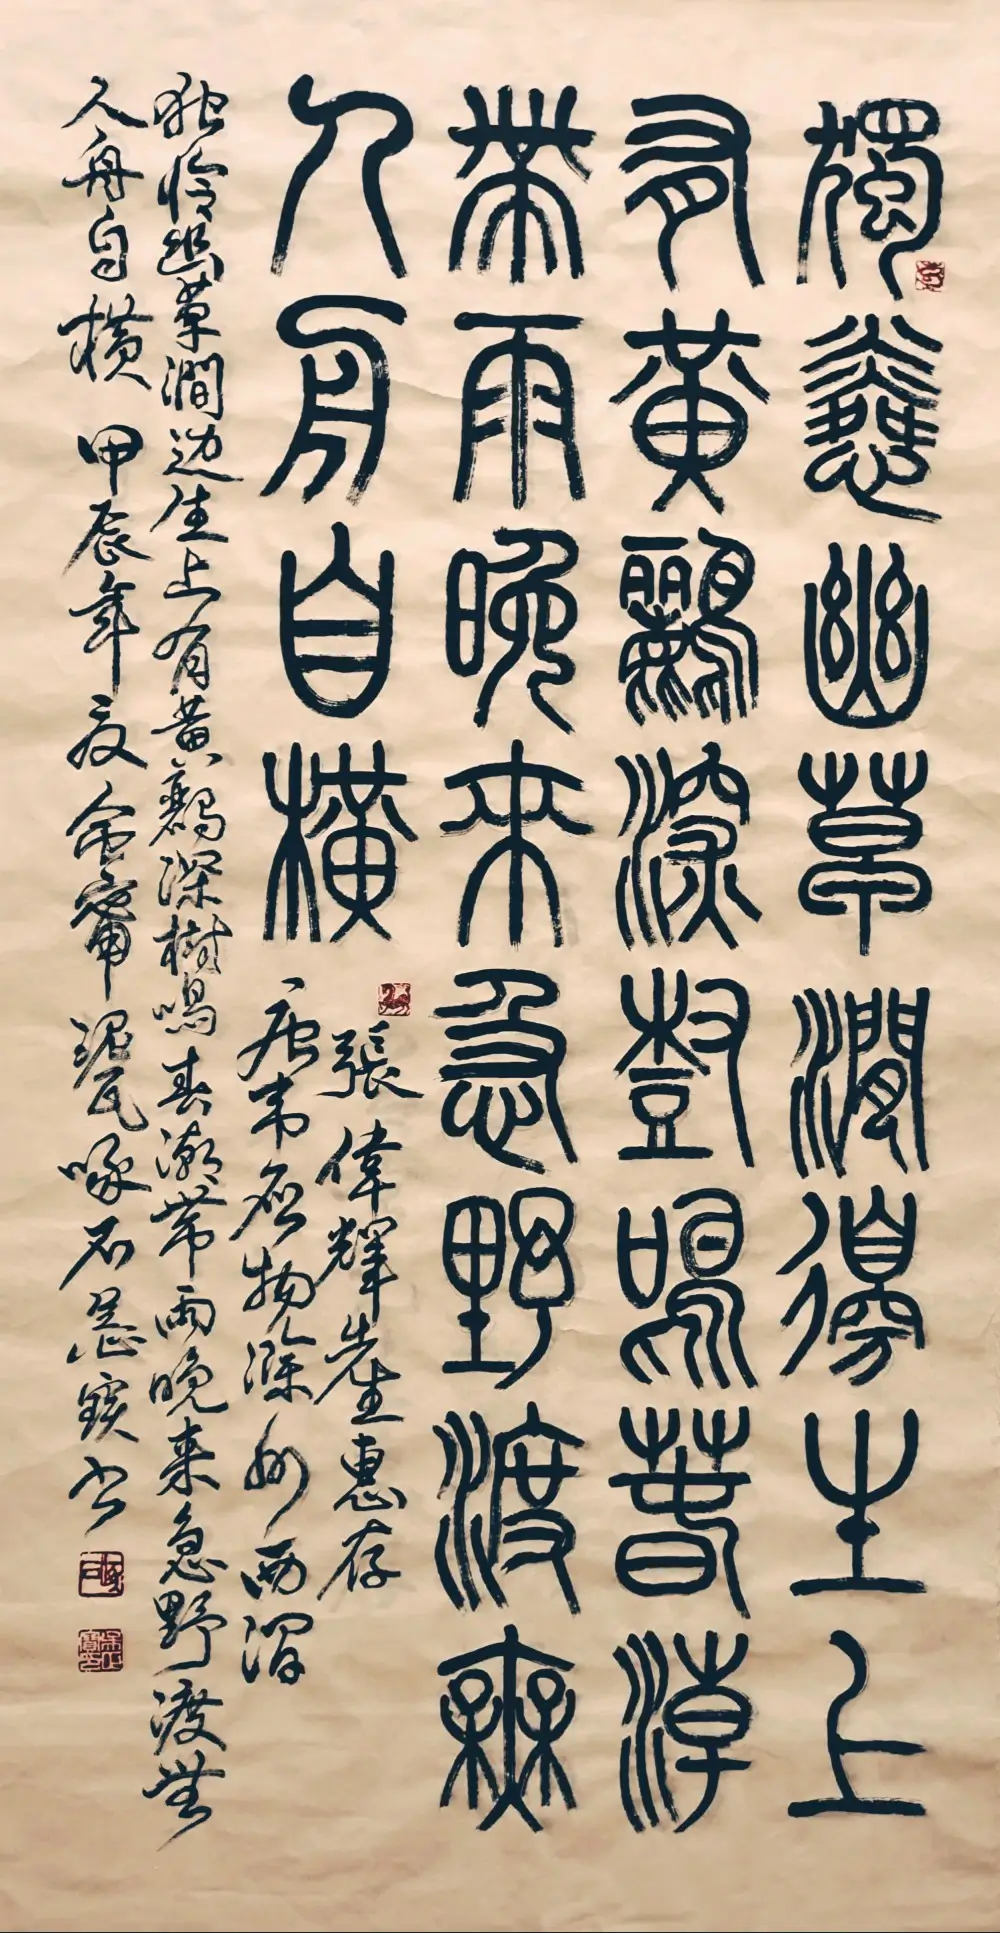 獨憐幽草澗邊生上
有黃鸝深樹鳴春潮
帶雨晚來急野渡無
人舟自橫
張偉輝先生惠存
唐韦應物滁州西澗
独怜幽草澗边生上有黄鸝深樹鳴春潮带雨晚来急野渡無
人舟自横 甲辰年夋 啄石 书